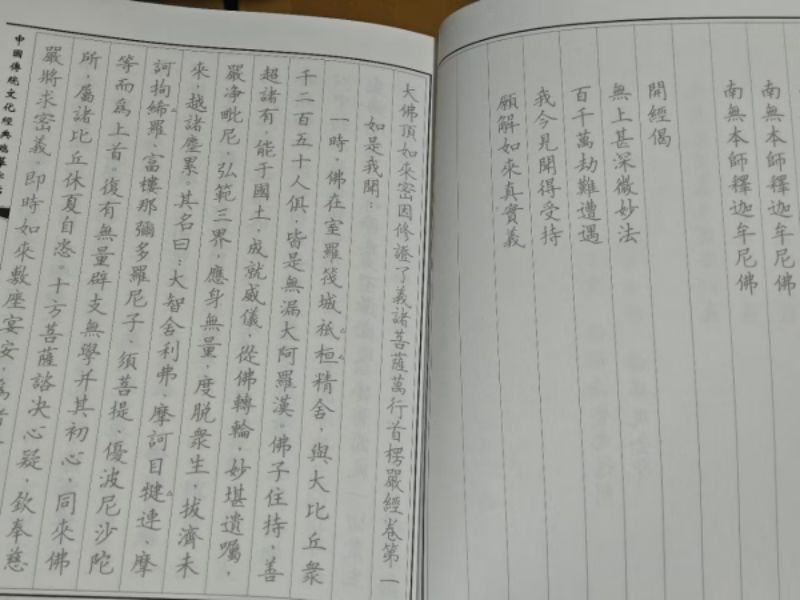 南無本師釋迦牟尼佛
南無本師釋迦牟尼佛
開經偈
無上甚深微妙法
百千萬劫難遭遇
我今見聞得受持
願解如來真實義
大佛頂如來密因修證了義諸菩薩萬行首楞嚴經卷第一
如是我聞：
一時，佛在室羅筏城祇桓精舍，與大比丘衆
千二百五十人俱，皆是無漏大阿羅漢。佛子住持，善
超諸有，能于國土，成就威儀，從佛轉輪，妙堪遺囑，
嚴净毗尼，弘範三界，應身無量，度脱衆生，拔濟未
來，越諸塵累。其名曰：大智舍利弗、摩訶目犍連、摩
訶拘絺羅、富樓那彌多羅尼子、須菩提、優波尼沙陀
等而爲上首。復有無量辟支無學并其初心，同來佛
所，屬諸比丘休夏自恣。十方菩薩諮決心疑，欽奉慈
嚴將求密義。即時如來敷座宴安，爲
中國傳統文化經典臨摹